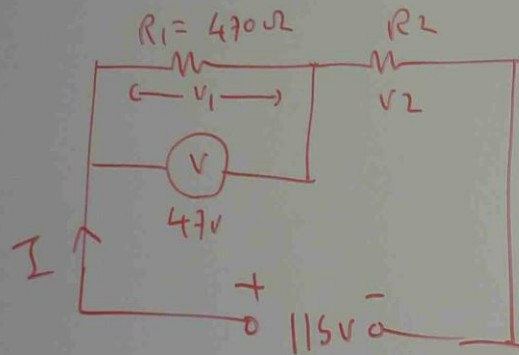 R1 = 470Ω R2
V1 V2
V
47V
I
+ -
115V